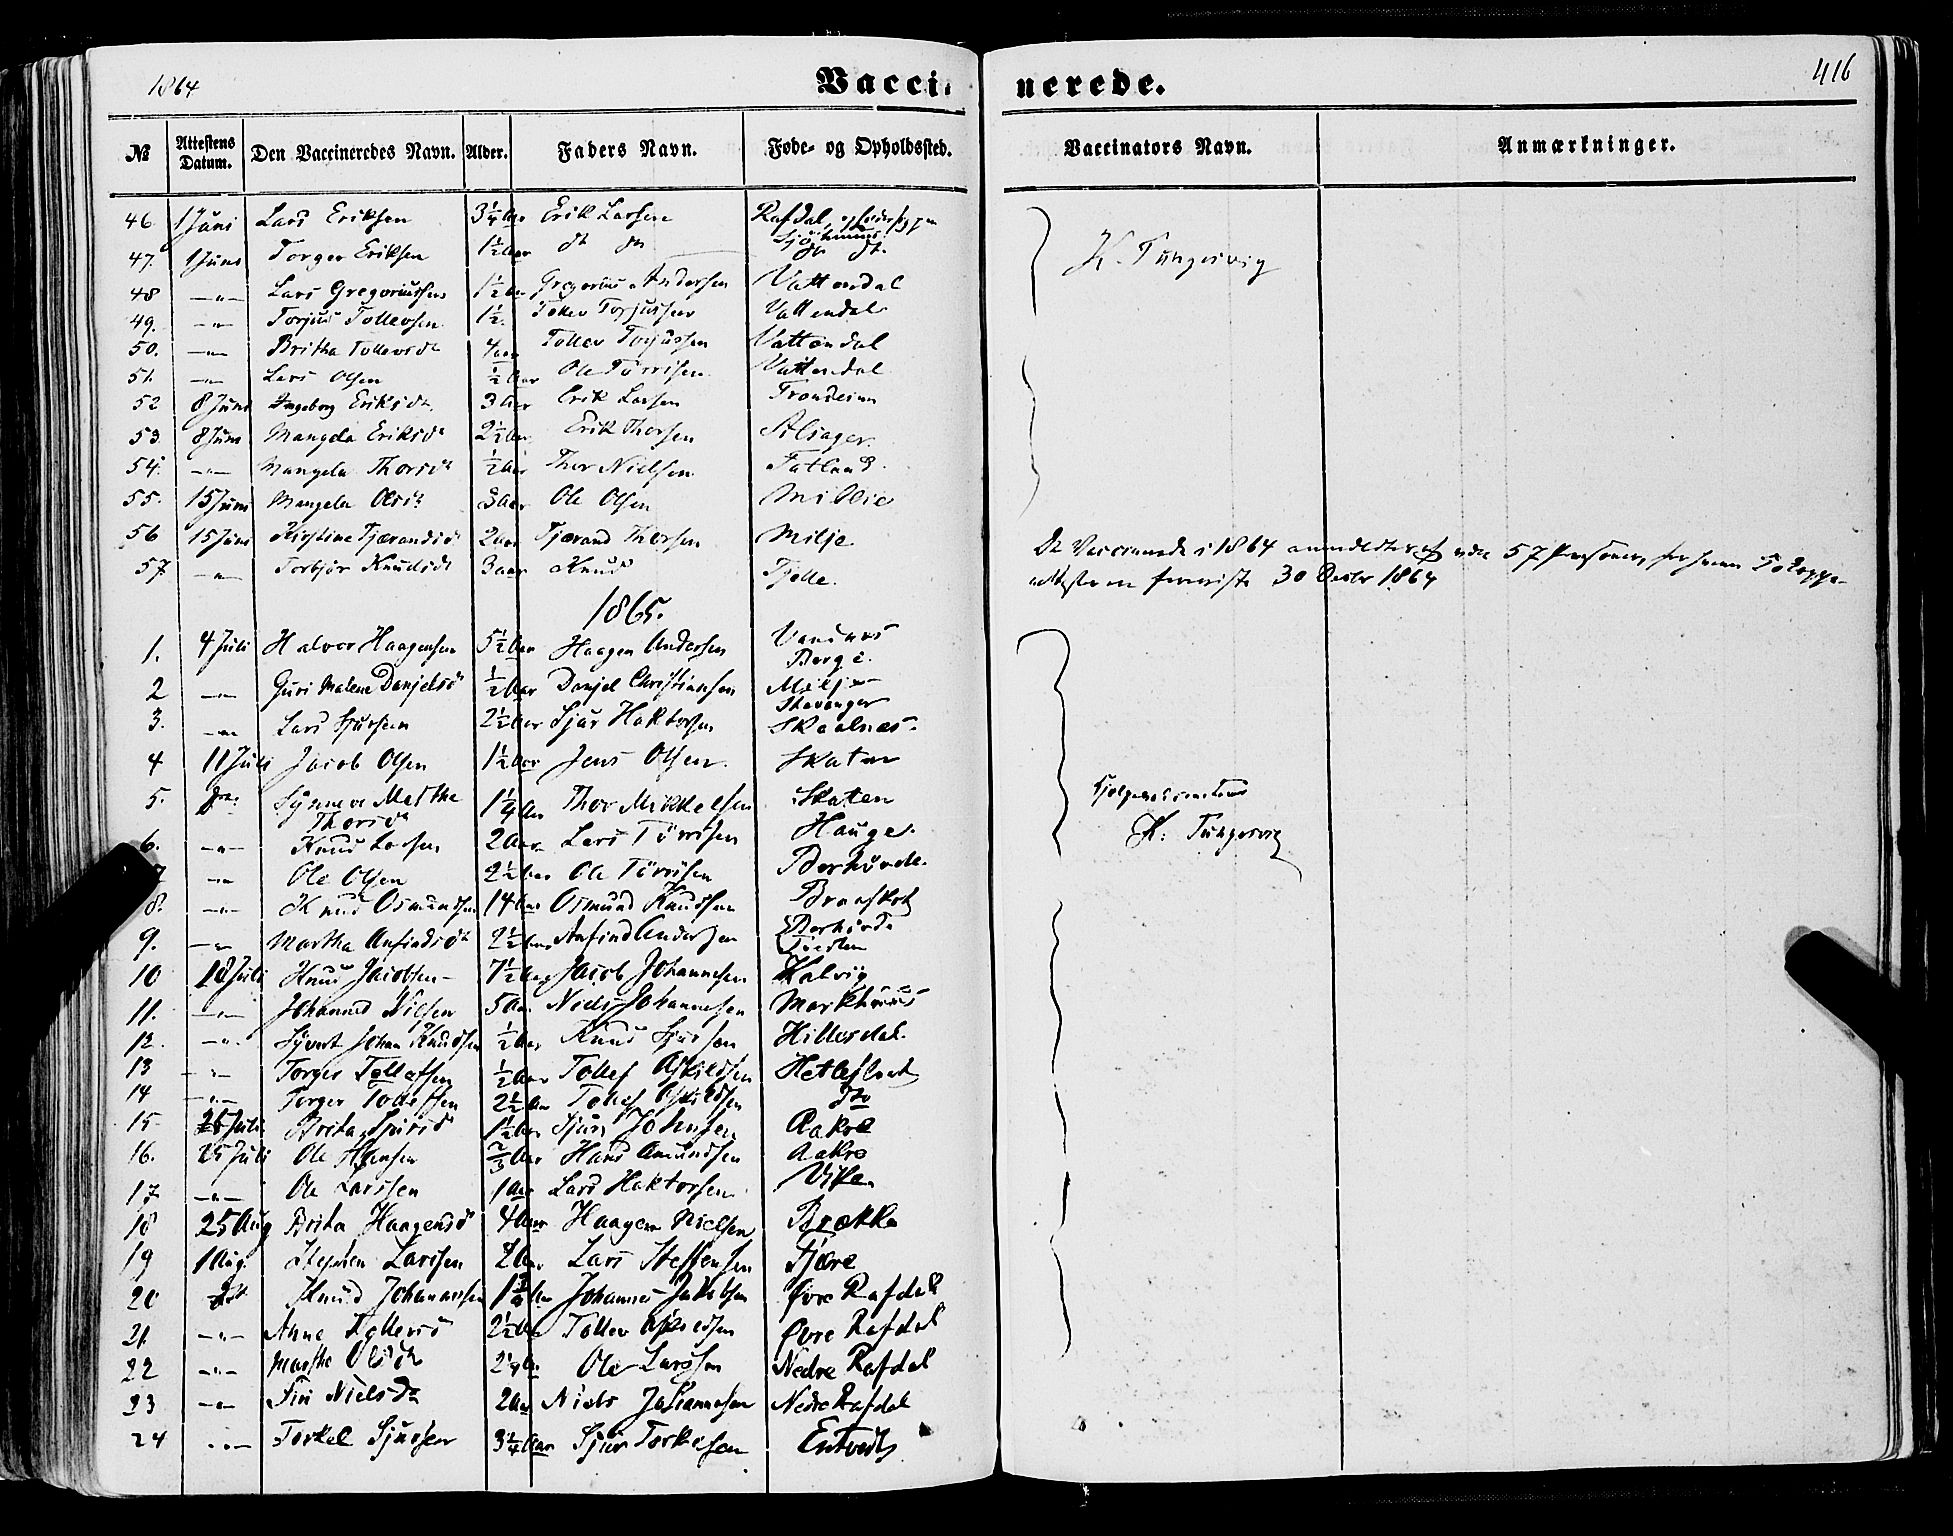 1864
Vaccinerede.
416
No Attestens Datum. Den Vaccineredes Navn. Alder. Faders Navn. Føde- og Opholdssted. Vaccinators Navn. Anmærkninger.
46. 1 Juni Lars Eriksen 3¼ Aar Erik Larsen Rafdal
47. 1 Juni Torger Eriksen 1½ Aar do do do do
K. Tungesvig
48 –"– Lars Gregoriussen 1½ Aar Gregorius Andersen Vattendal
49. –"– Torjus Tollevsen 1½ Tollev Torjussen Vattendal
50. –"– Britha Tollevsdr 4 Aar Tollev Torjussen Vattendal
51. –"– Lars Olsen ½ Aar Ole Törrisen Vattendal
52 8 Juni Ingeborg Eriksdr. 3 Aar Erik Larsen Trondeim
53. 8 Juni Mangela Eriksdr 2½ Aar Erik Thorsen Alsager.
54. –"– Mangela Thorsdr ½ Aar Thor Nielsen Fatland.
55. 15 Juni Mangela Olsdr 3 Aar Ole Olsen Millie
56 15 Juni Kirstine Tjærandsdr 2 Aar Tjærand Thorsen Milje
57 –"– Torbjør Knudsdr 3 Aar Knud Tjelle.
De Vaccinerede i 1864 57 Personer,
30 Decbr 1864
1865.
1. 4 Juli Halvor Haagensen 5½ Aar Haagen Andersen Berge.
2 –"– Guri Malene Danjelsdr ½ Aar Danjel Christiansen Milje Stavanger
3. –"– Lars Sjursen 2½ Aar Sjur Haktorsen Skaalnes
4 11 Juli Jacob Olsen 1½ Aar Jens Olsen. Skaten
5. do Synneve Marthe Thorsdr 1¼ Aar Thor Mikkelsen Skaten
Hjelpevaccinateur
K. Tungesvig
6. –"– Knud Larsen 2 Aar Lars Törrisen Hauge.
7 –"– Ole Olsen 2½ Aar Ole Törrisen
8. –"– Knud Osmundsen 14 Aar Osmund Knudsen
9. –"– Martha Anfindsdr 2½ Aar Anfind Andersen
10 18 Juli Knud Jacobsen 7½ Aar Jacob Johannesen Kalvig
11. –"– Johannes Nielsen 5 Aar Niels Johannesen Markhuus
12. –"– Syvert Johan Knudsen ½ Aar Knud Sjursen Hillesdal.
13 –"– Torger Tollefsen ½ Aar Tollef Askildsen Hetleflaat
14 –"– Torger Tollefsen 2½ Aar Tollef Askildsen Dto
15 25 Juli Brita Sjursdr 1½ Aar Sjur Johnsen Aakre
16. 25 Juli Ole Hansen ⅔ Aar Hans Amundsen Aakre
17 –"– Ole Larssen 1 Aar Lars Haktorsen Vika
18 25 Aug Brita Haagensdr 4 Aar Haagen Nielsen Brække
19 1 Aug. Stephen Larssen 2 Aar Lars Steffensen Fjære
20 do Knud Johannesen Johannes Jakobsen Øvre Rafdal
21. –"– Anna Tollevsd 2½ Aar Tollev Askildsen Øvre Rafdal
22 –"– Marthe Olsdr 2¼ Aar Ole Larssen Nedre Rafdal
23 –"– Siri Nielsdr 2 Aar Niels Johannesen Nedre Rafdal
24 –"– Torkel Sjursen 3¼ Aar Sjur Torkelsen Entvedt